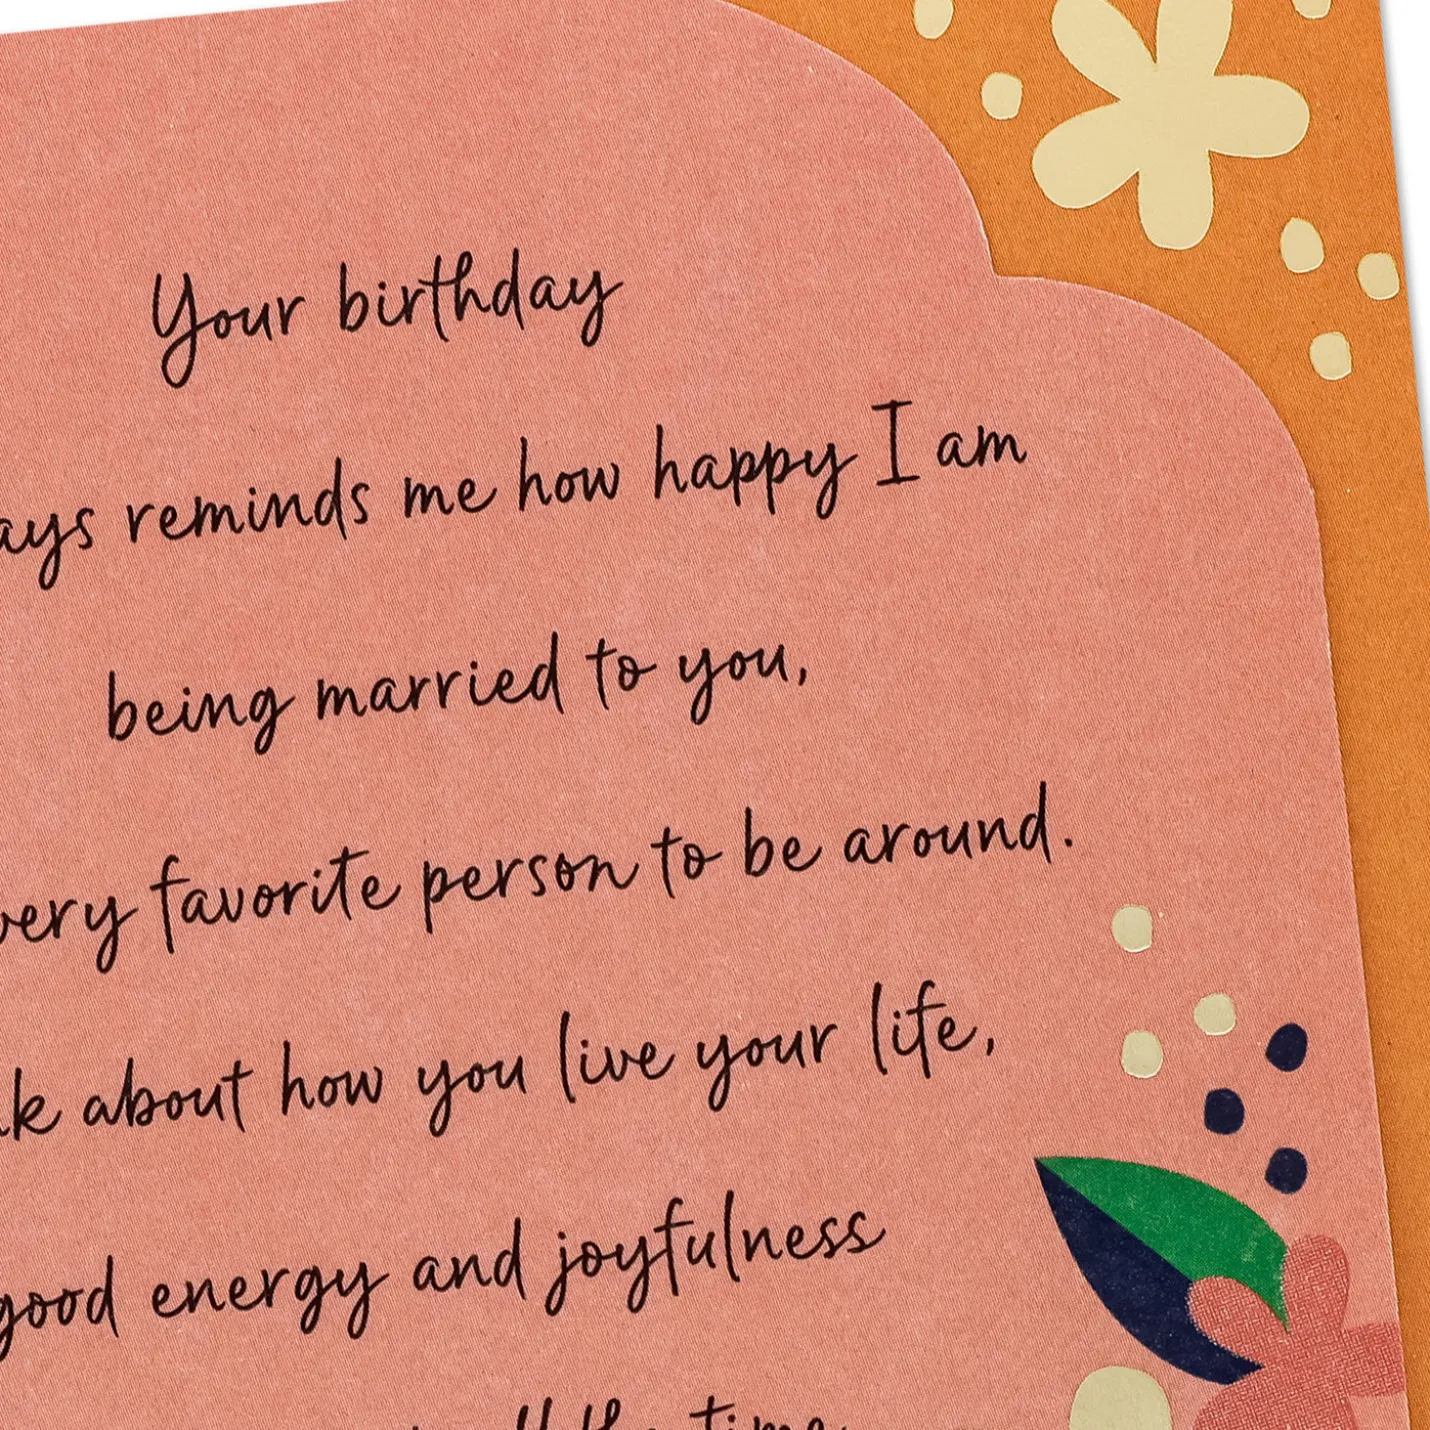 Your birthday
ays reminds me how happy I am
being married to you,
very favorite person to be around.
k about how you live your life,
good energy and joyfulness
all the time